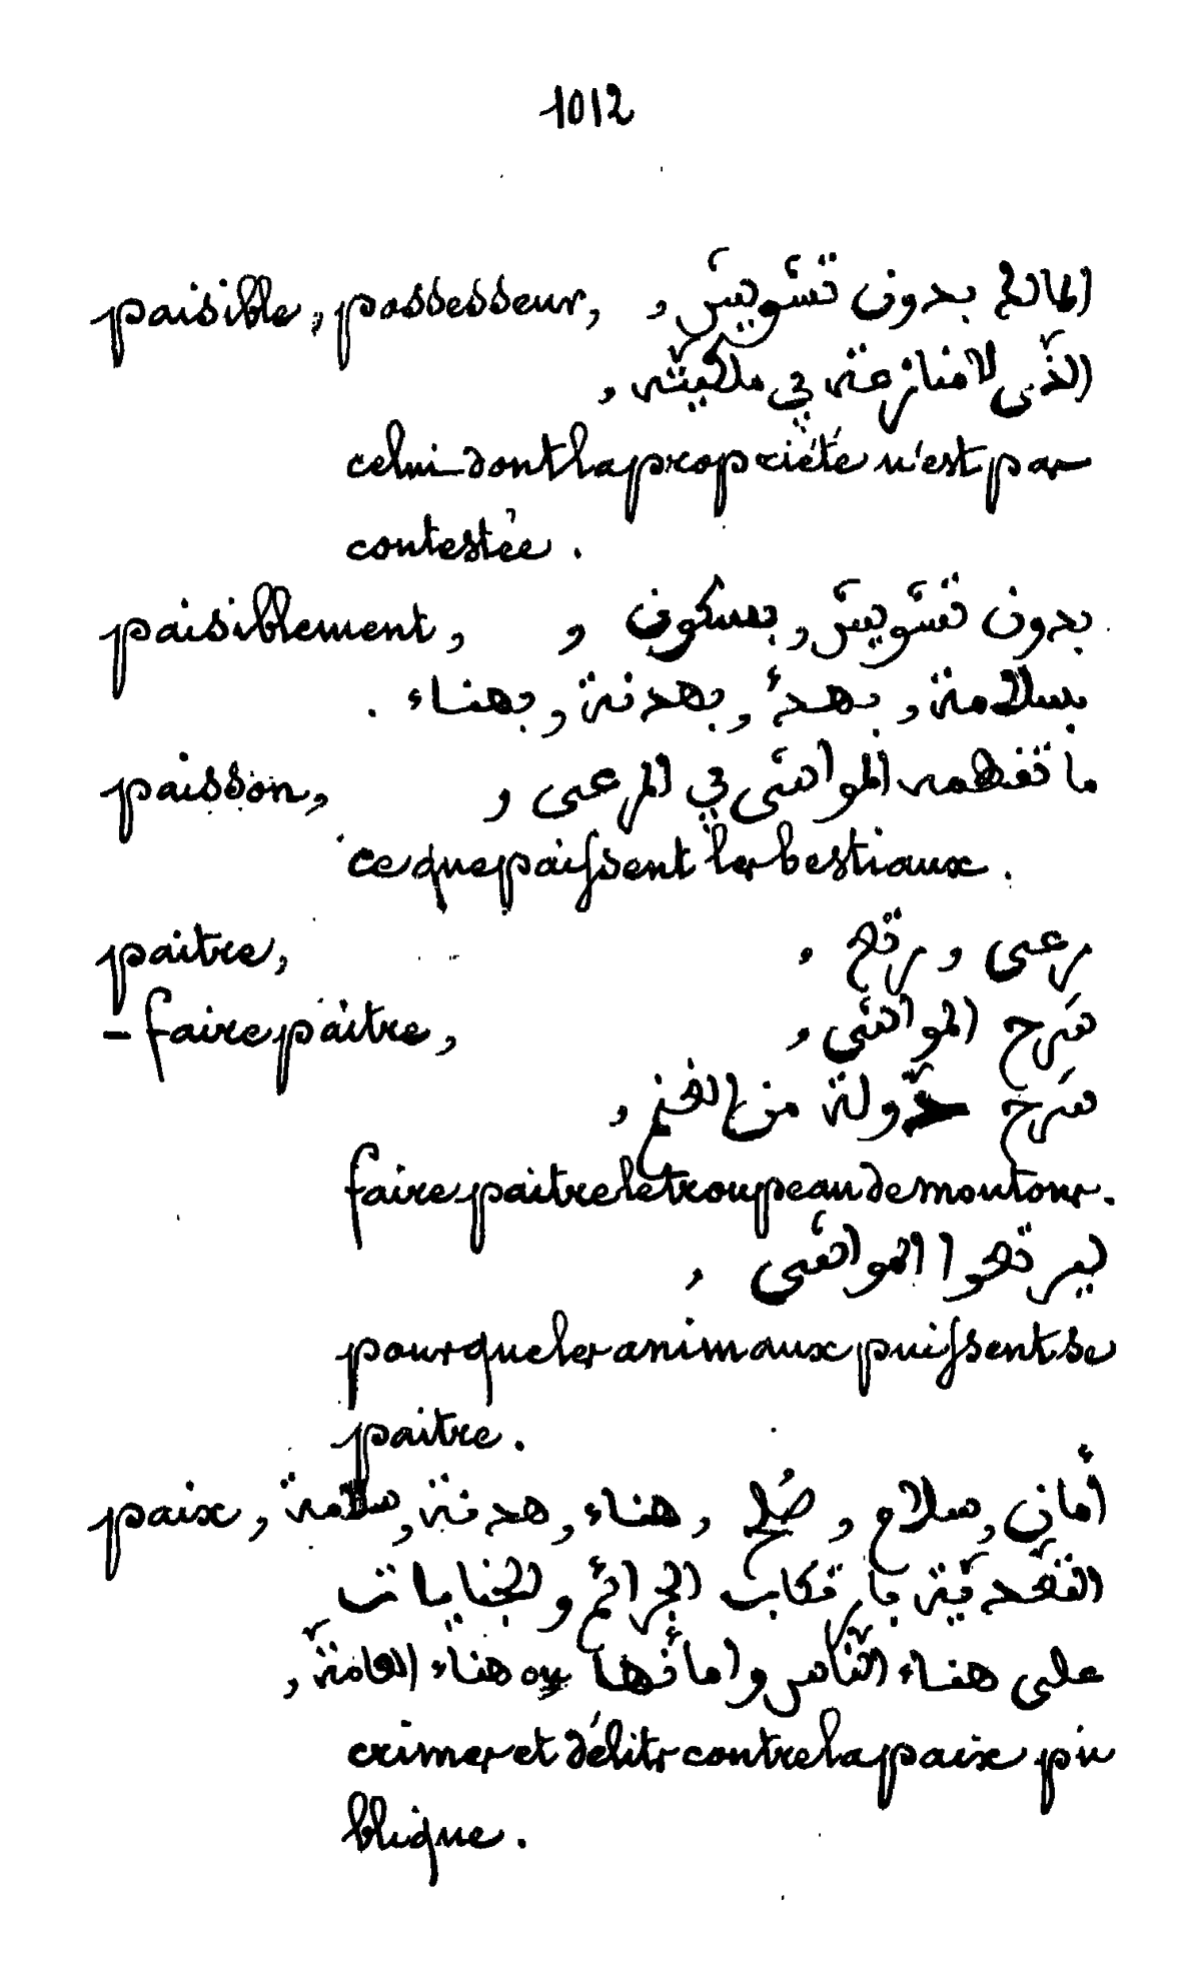 1012
paisible, possesseur, المالك بدون تشويش,
الذّي لا منازعة في ملكيّته,
celui dont la propriété n'est pas
contestée.
paisiblement, بدون تشويش, بسكون,
بسلامة, بهدئ, بهدنة, بهناء.
paisson, ما تقطمه المواشي في المرعى,
ce que paissent les bestiaux.
paitre, رعى, رتع,
- faire paitre, سَرح المواشي,
سَرح دَّولة من الغنم,
faire paitre le troupeau de moutons.
ليرتعوا المواشي,
pour que les animaux puissent se
paitre.
paix, أمان, سلام, صُلح, هناء, هدنة, سلامة
التّعدّية بارتكاب الجرائم والجنايات
على هناء النّاس وأمانها ou هناء العامّة,
crimes et délits contre la paix pu
blique.